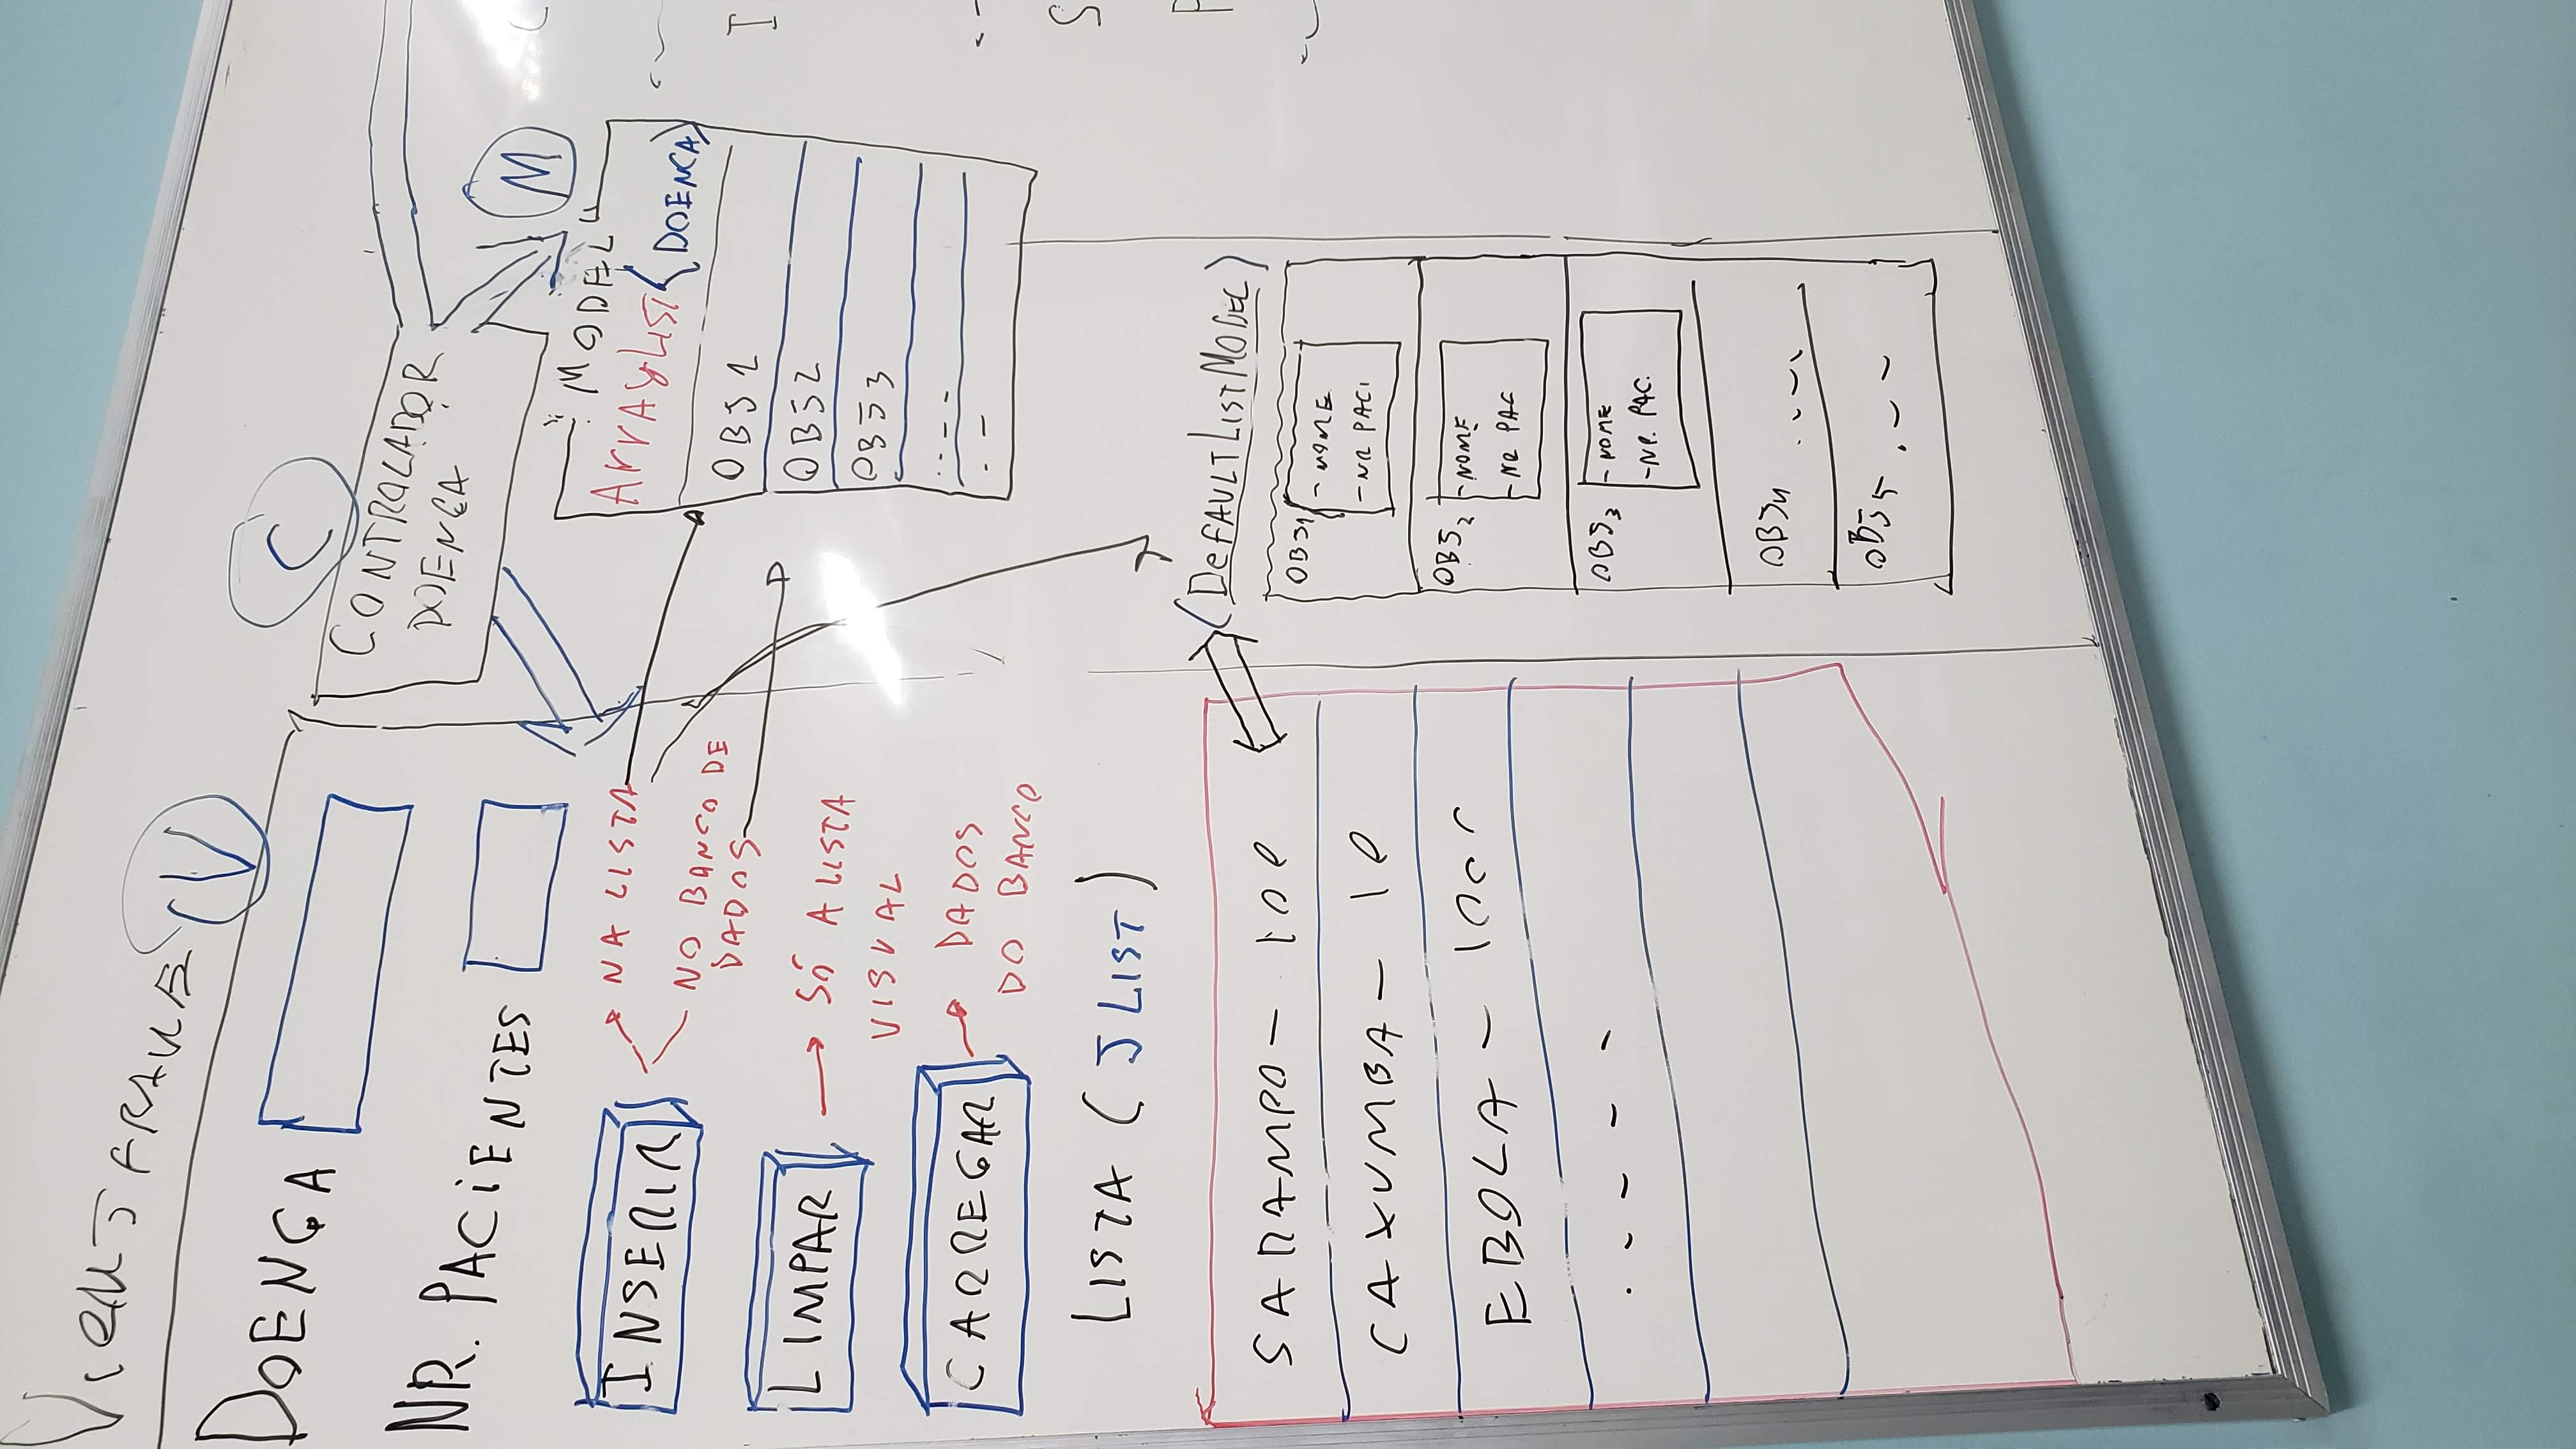 VIEWJFRAME
V
DOENÇA
NR. PACIENTES
INSERIR
NA LISTA
NO BANCO DE
DADOS
LIMPAR
SÓ A LISTA
VISUAL
CARREGAR
DADOS
DO BANCO
LISTA (JLIST)
SARAMPO - 100
CAXUMBA - 10
EBOLA - 1000
C
CONTROLADOR
DOENÇA
M
"MODEL"
ArrayList<DOENCA>
OBJ1
OBJ2
OBJ3
(DeFAULTLISTMODEL)
OBJ1
- NOME
- NR PACI
OBJ2
- NOME
- NR PAC
OBJ3
- NOME
- NR. PAC.
OBJ4
OBJ5
I
S
P